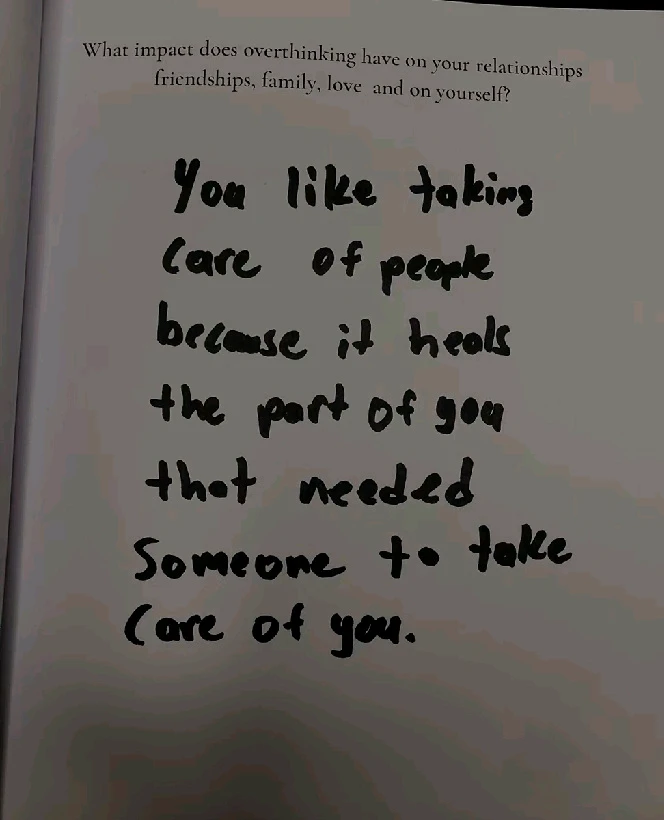 What impact does overthinking have on your relationships
friendships, family, love and on yourself?
You like taking
care of people
because it heals
the part of you
that needed
someone to take
care of you.